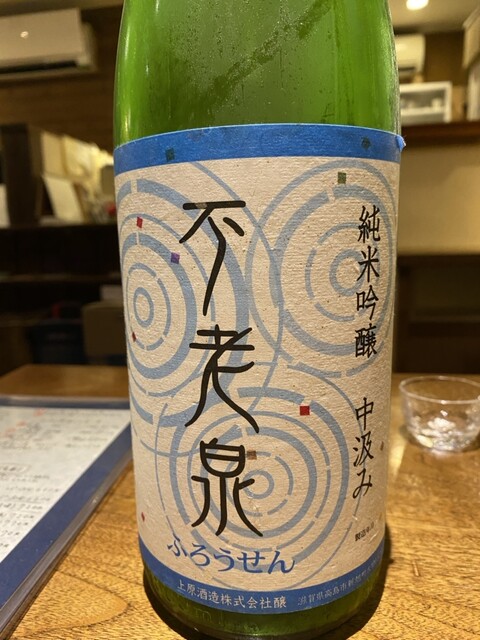 不老泉
ふろうせん
純米吟醸 中汲み
上原酒造株式会社醸
滋賀県高島市